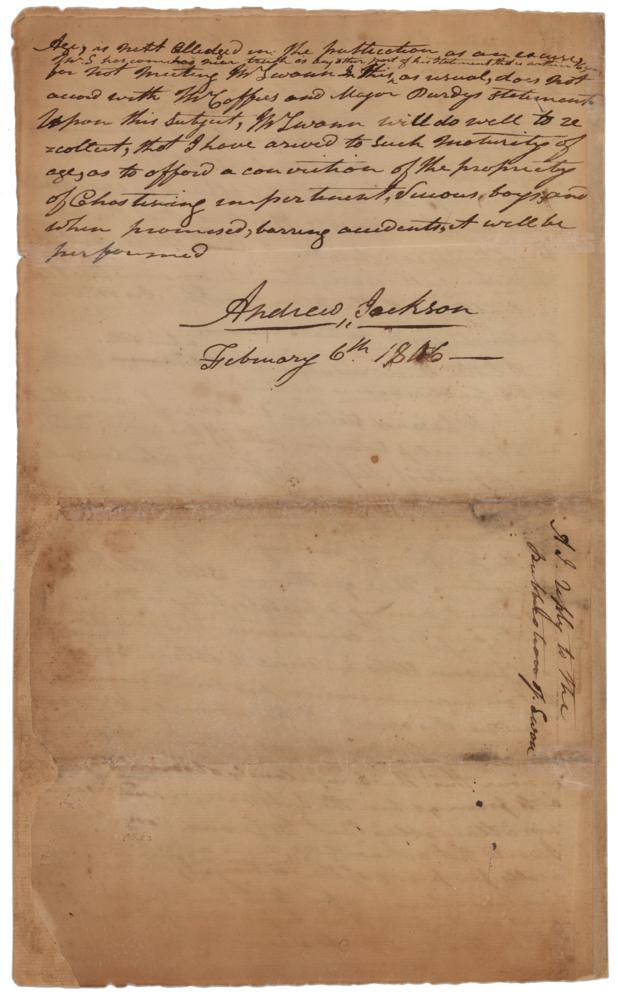 Age, is next alledged in the publication as an excuse
Mr. S has come as near truth as any other part of his statement that is
for not meeting Mr Swann & This, as usual, does not
accord with Mr Coffees and Major Purdys statement
Upon this Subject, Mr Swann will do well to re
=collect, that I have arived to Such maturity of
age, as to afford a conviction of the propriety
of Chastising impertinent, boys, and
when promised, barring accidents, it will be
performed
Andrew, Jackson
February 6th 1806 —
A. J. reply to the
Publication of Swan